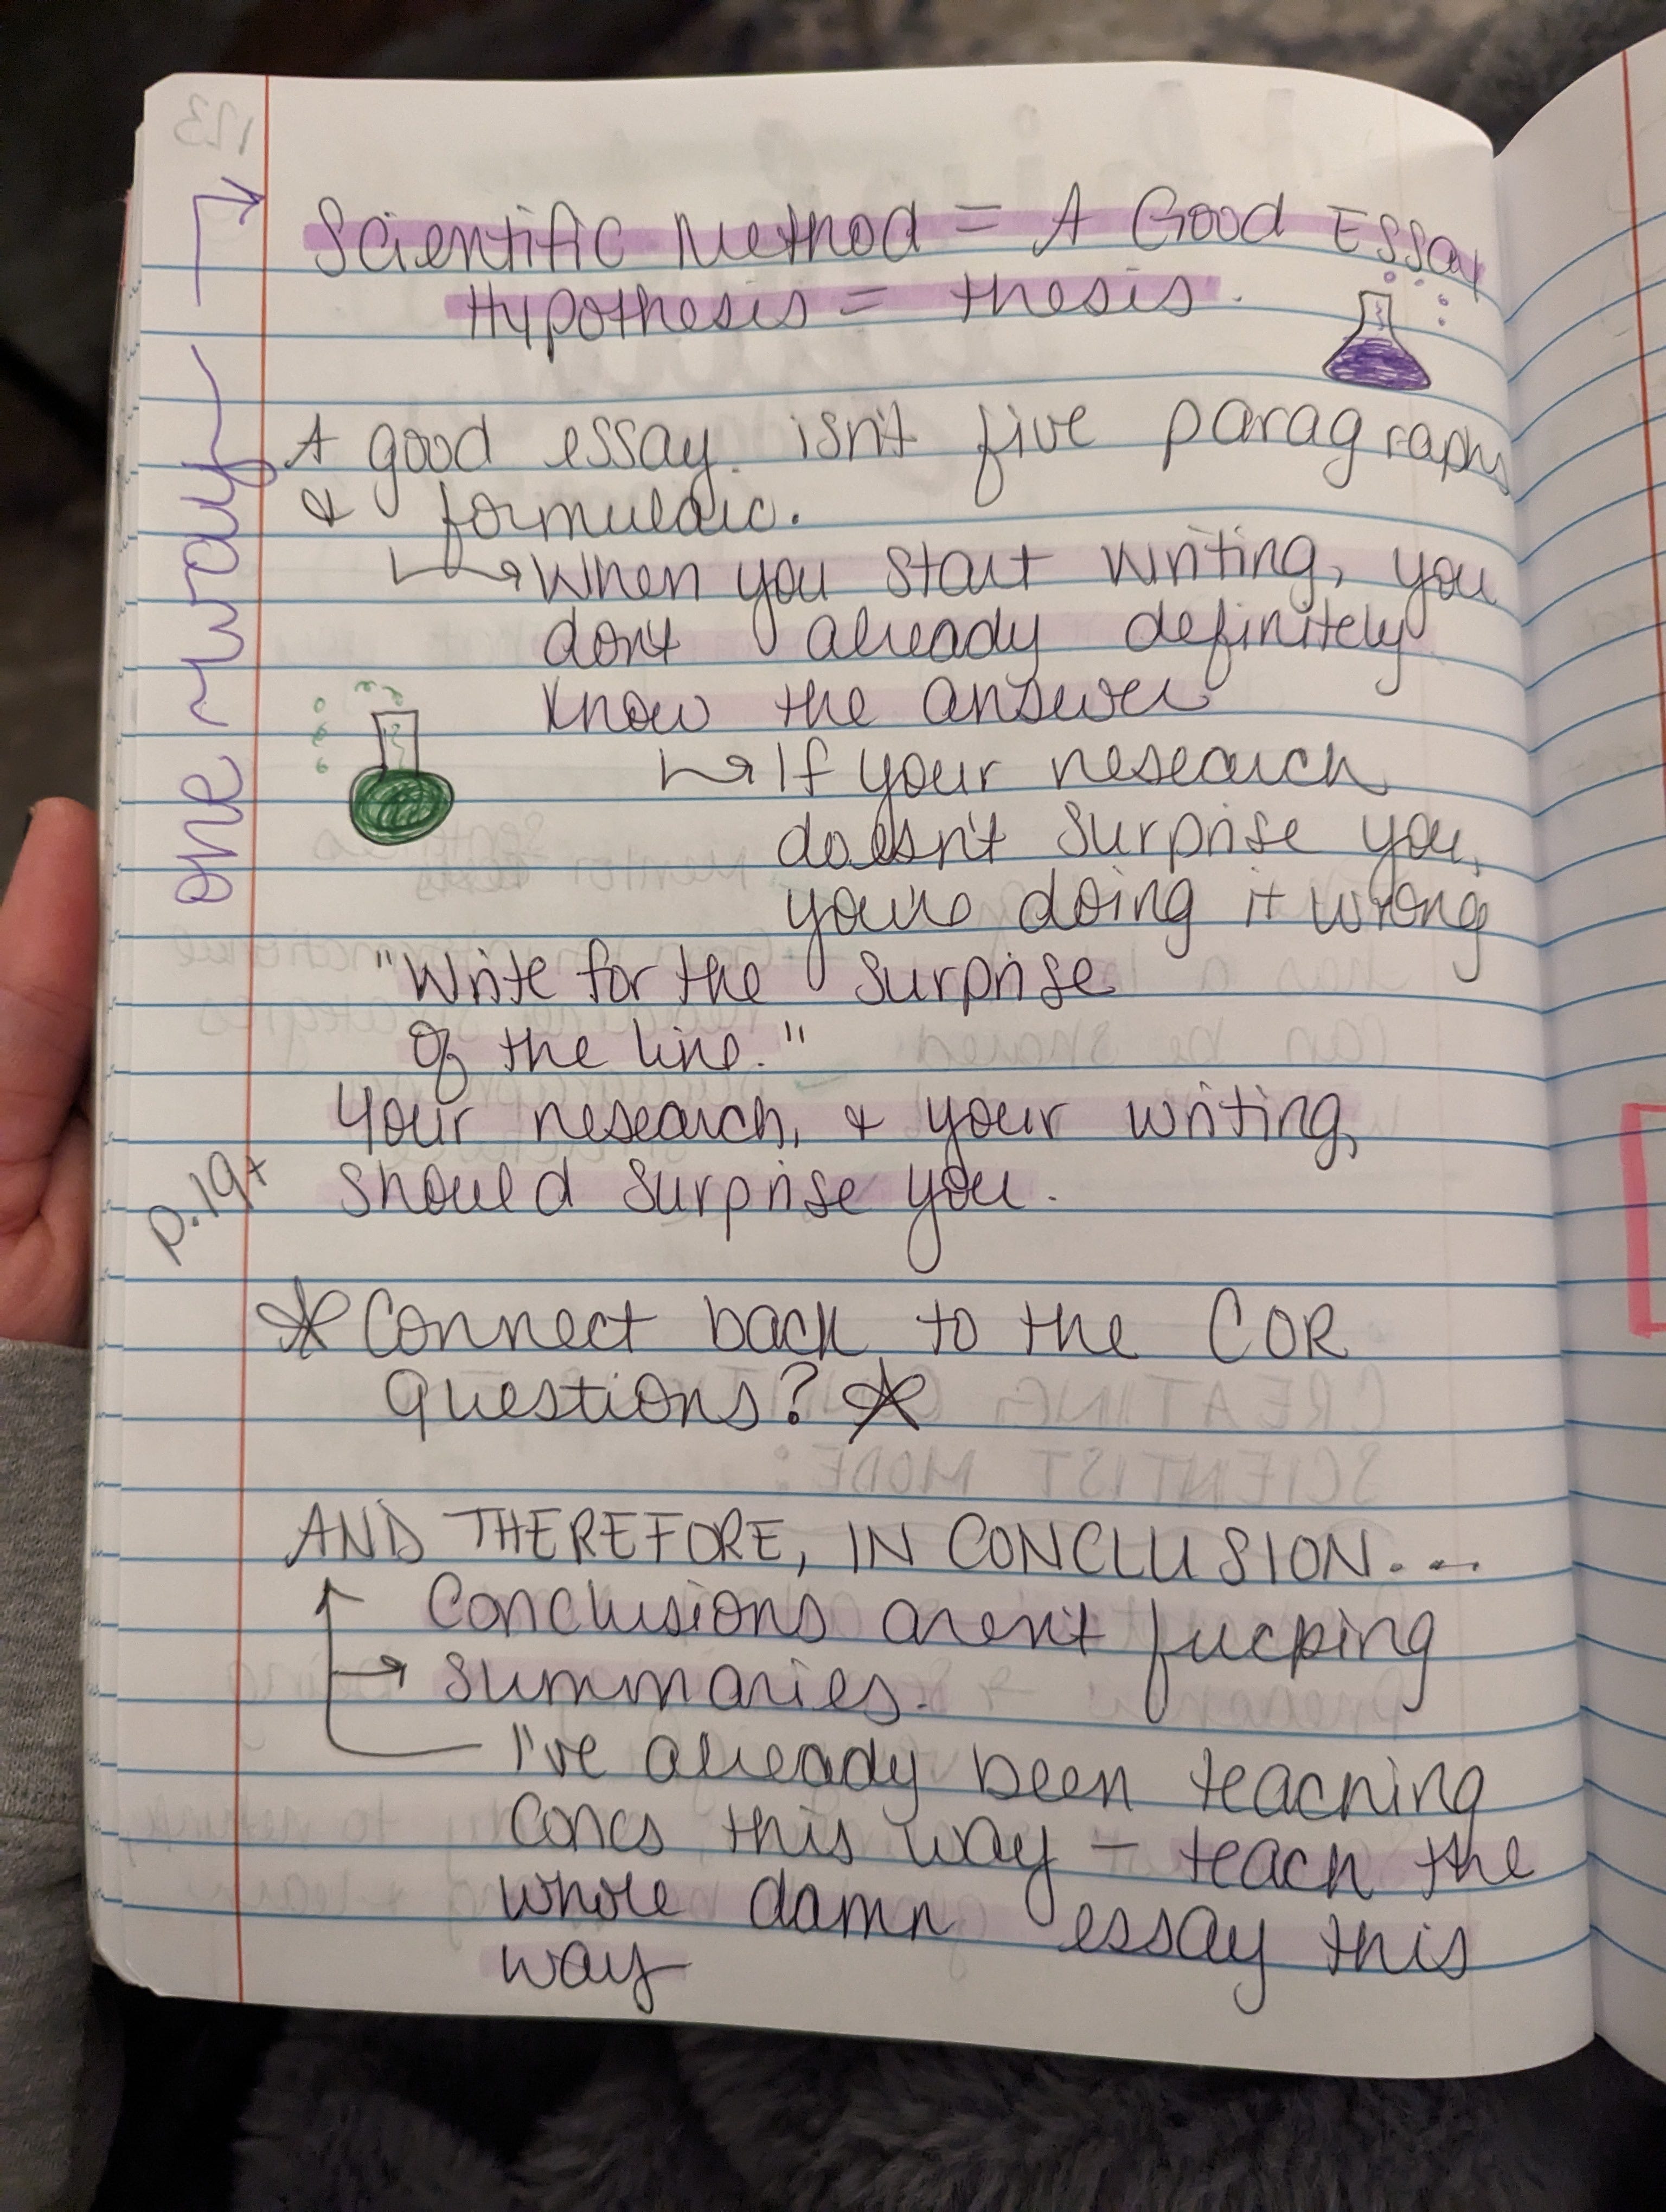 one way
Scientific Method = A Good Essay
Hypothesis = thesis.
A good essay isn't five paragraphs
& formulaic.
When you start writing, you
don't already definitely
know the answer
If your research
doesn't surprise you,
you're doing it wrong
"Write for the surprise
of the line."
Your research, & your writing,
should surprise you.
p.19+
*Connect back to the COR
questions? *
AND THEREFORE, IN CONCLUSION...
Conclusions aren't fucking
summaries.
I've already been teaching
concs this way - teach the
whole damn essay this
way